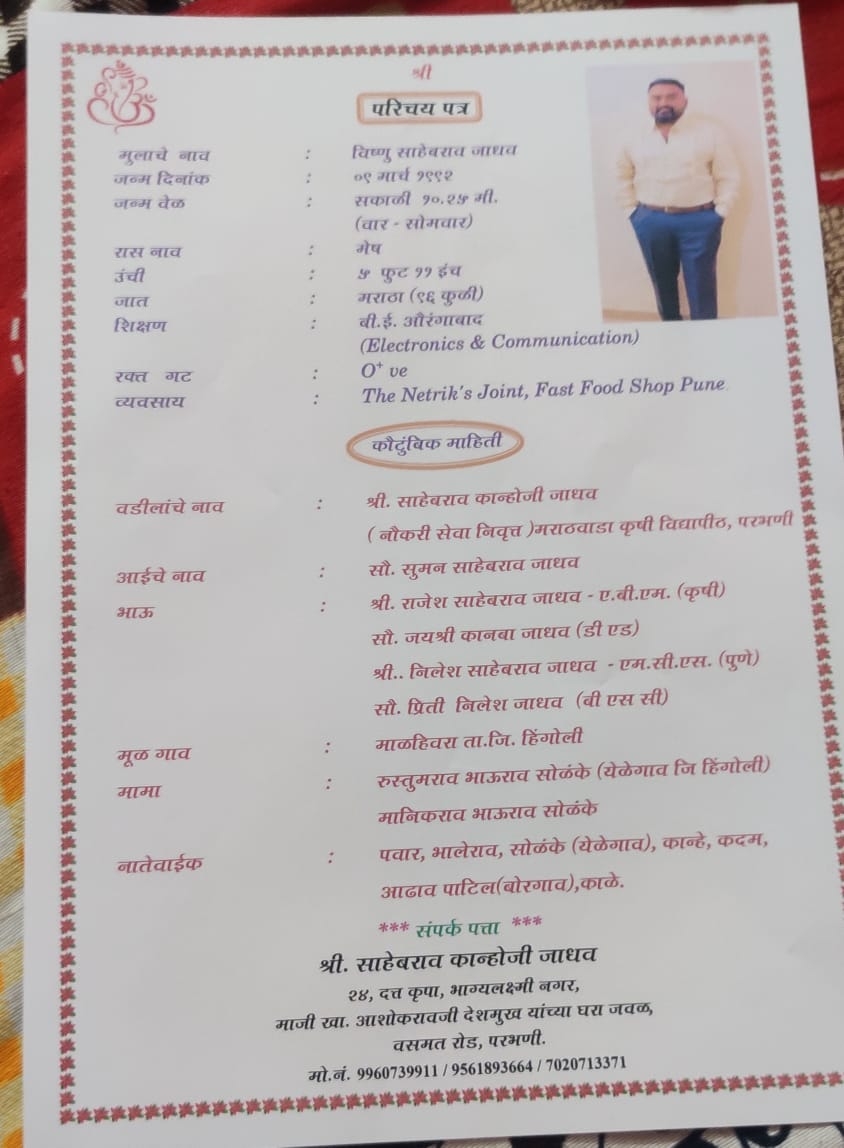 श्री
परिचय पत्र
मुलाचे नाव : विष्णु साहेबराव जाधव
जन्म दिनांक : ०९ मार्च १९९२
जन्म वेळ : सकाळी १०.२५ मी.
(वार - सोमवार)
रास नाव : मेष
उंची : ५ फुट ११ इंच
जात : मराठा (९६ कुळी)
शिक्षण : बी.ई. औरंगाबाद
(Electronics & Communication)
रक्त गट : O⁺ ve
व्यवसाय : The Netrik's Joint, Fast Food Shop Pune
कौटुंबिक माहिती
वडीलांचे नाव : श्री. साहेबराव कान्होजी जाधव
( नौकरी सेवा निवृत्त )मराठवाडा कृषी विद्यापीठ, परभणी
आईचे नाव : सौ. सुमन साहेबराव जाधव
भाऊ : श्री. राजेश साहेबराव जाधव - ए.बी.एम. (कृषी)
सौ. जयश्री कानबा जाधव (डी एड)
श्री.. निलेश साहेबराव जाधव - एम.सी.एस. (पुणे)
सौ. प्रिती निलेश जाधव (बी एस सी)
मूळ गाव : माळहिवरा ता.जि. हिंगोली
मामा : रुस्तुमराव भाऊराव सोळंके (येळेगाव जि हिंगोली)
मानिकराव भाऊराव सोळंके
नातेवाईक : पवार, भालेराव, सोळंके (येळेगाव), कान्हे, कदम,
आढाव पाटिल(बोरगाव),काळे.
*** संपर्क पत्ता ***
श्री. साहेबराव कान्होजी जाधव
२४, दत्त कृपा, भाग्यलक्ष्मी नगर,
माजी खा. आशोकरावजी देशमुख यांच्या घरा जवळ,
वसमत रोड, परभणी.
मो.नं. 9960739911 / 9561893664 / 7020713371